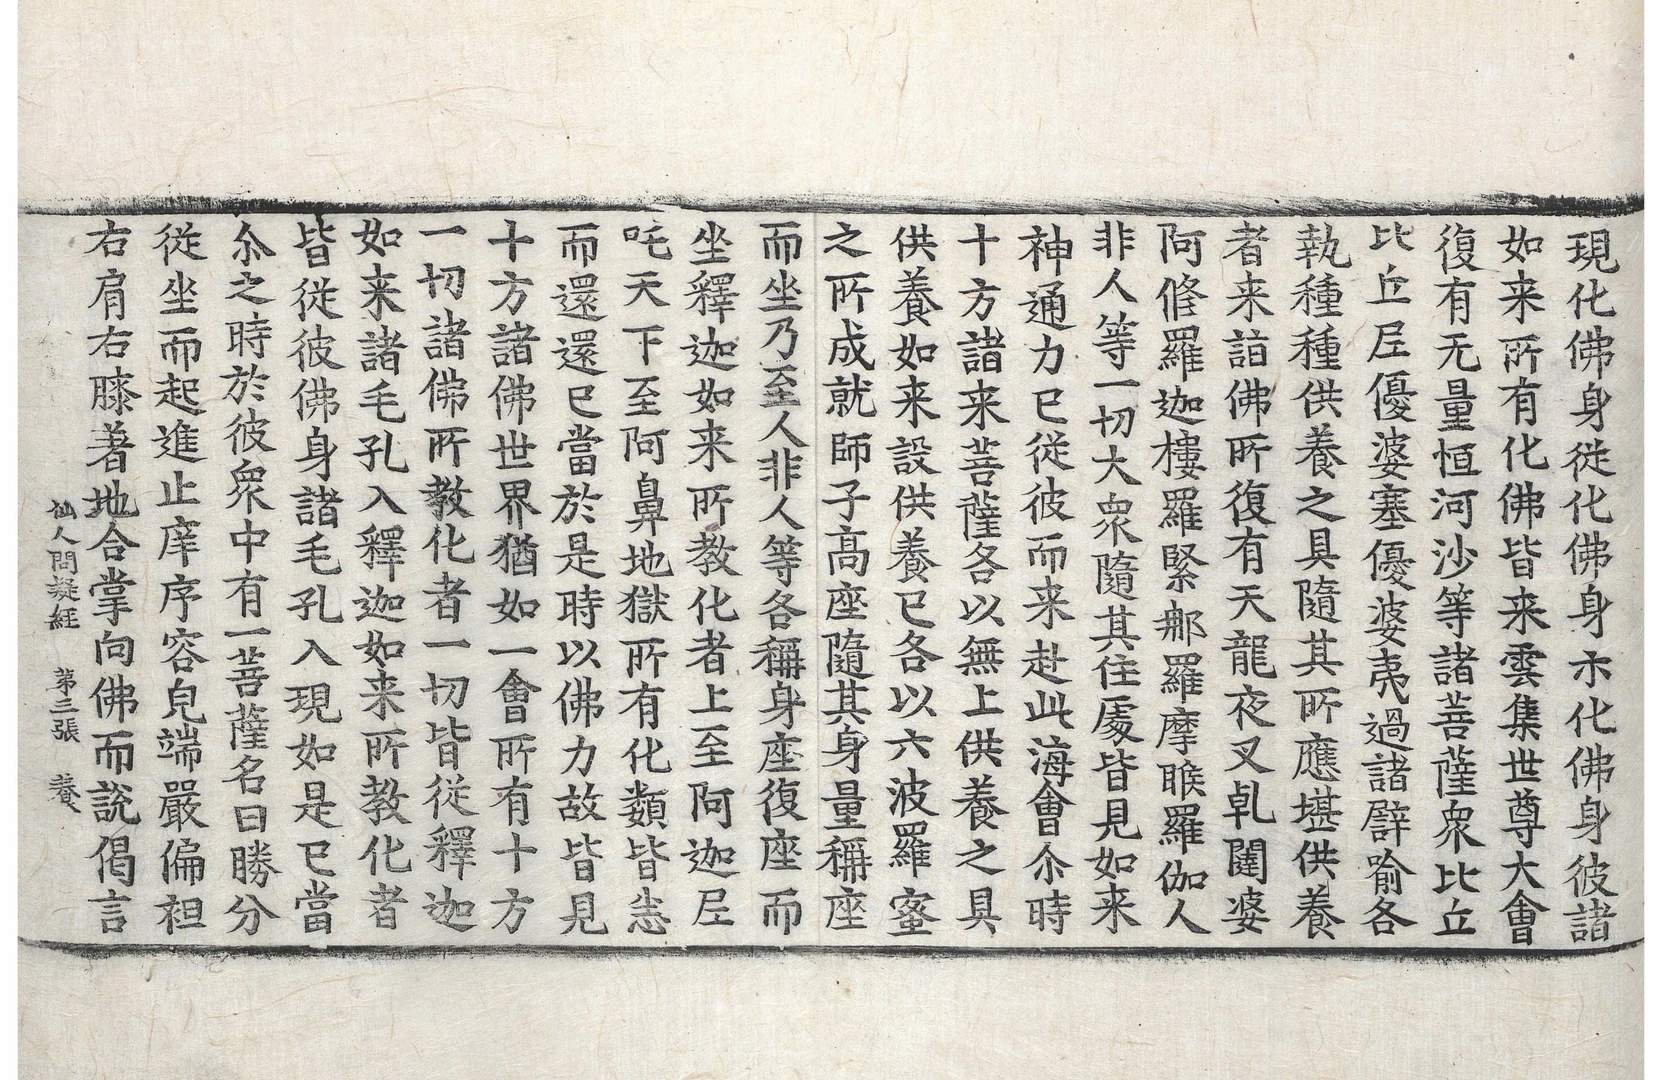 現化佛身從化佛身示化佛身彼諸
如来所有化佛皆来雲集世尊大會
復有无量恒河沙等諸菩薩衆比丘
比丘尼優婆塞優婆夷過諸辟喻各
執種種供養之具隨其所應堪供養
者来詣佛所復有天龍夜叉乹闥婆
阿脩羅迦樓羅緊那羅摩睺羅伽人
非人等一切大衆隨其住處皆見如来
神通力已從彼而来赴此海會尒時
十方諸来菩薩各以無上供養之具
供養如来設供養已各以六波羅蜜
之所成就師子高座隨其身量稱座
而坐乃至人非人等各稱身座復座而
坐釋迦如来所教化者上至阿迦尼
吒天下至阿鼻地獄所有化類皆悉
而還還已當於是時以佛力故皆見
十方諸佛世界猶如一會所有十方
一切諸佛所教化者一切皆從釋迦
如来諸毛孔入釋迦如来所教化者
皆從彼佛身諸毛孔入現如是已當
尒之時於彼衆中有一菩薩名曰勝分
從坐而起進止庠序容皃端嚴偏袒
右肩右膝著地合掌向佛而說偈言
仙人問疑經 第三張 養